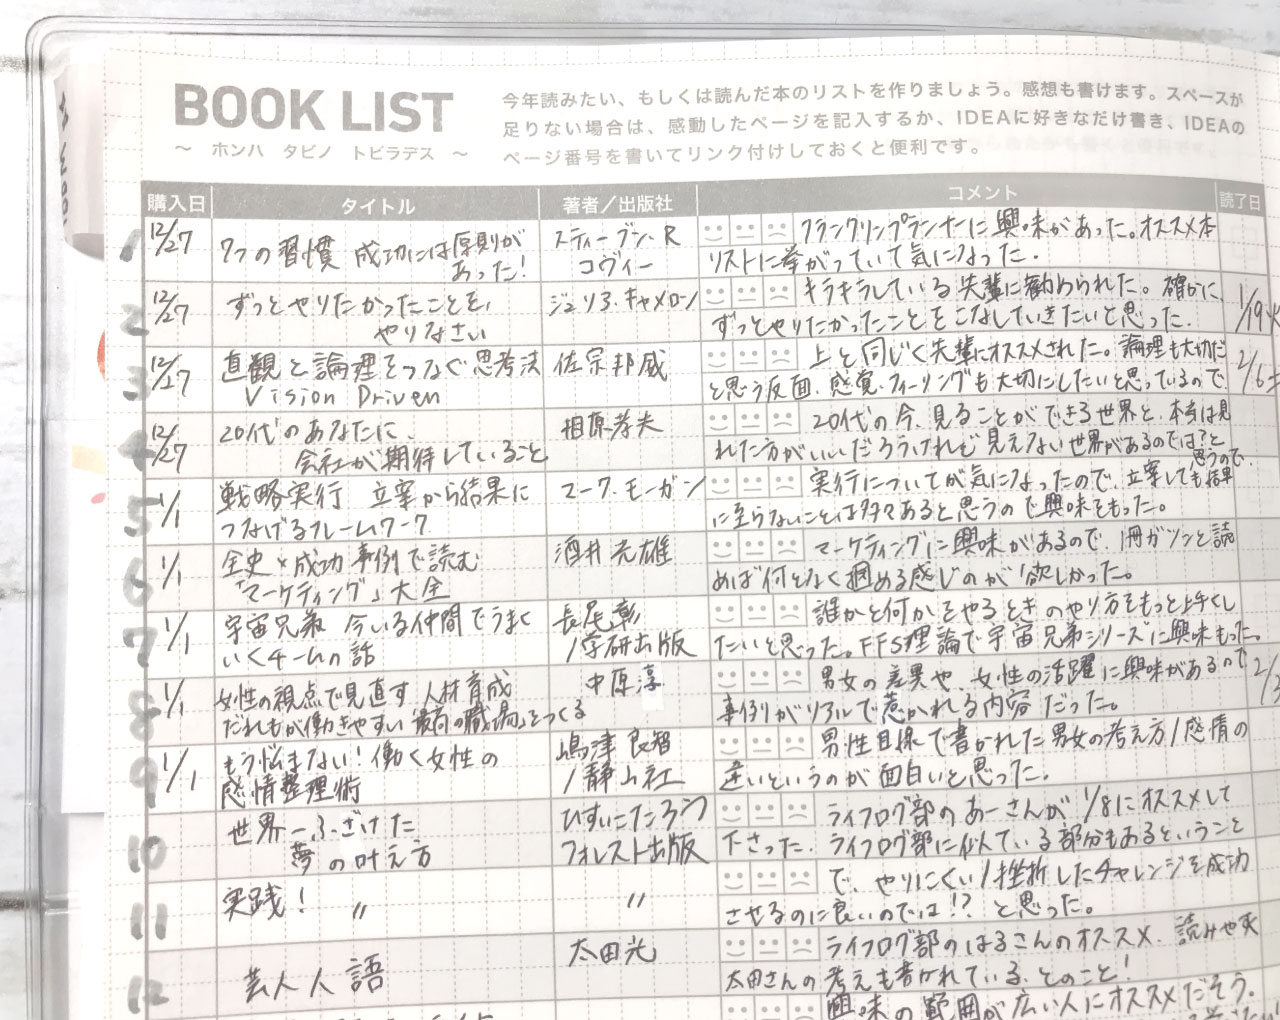 BOOK LIST
～ ホンハ タビノ トビラデス ～
今年読みたい、もしくは読んだ本のリストを作りましょう。感想も書けます。スペースが
足りない場合は、感動したページを記入するか、IDEAに好きなだけ書き、IDEAの
ページ番号を書いてリンク付けしておくと便利です。
購入日 タイトル 著者／出版社 コメント 読了日
1 12/27 7つの習慣 成功には原則が スティーブン・R フランクリンプランナーに興味があった。オススメ本
あった! コヴィー リストに挙がっていて気になった.
2 12/27 ずっとやりたかったことを、 ジュリア・キャメロン キラキラしている先輩に勧められた。確かに、 1/19
やりなさい ずっとやりたかったことをこなしていきたいと思った.
3 12/27 直観と論理をつなぐ思考法 佐宗邦威 上と同じく先輩にオススメされた。論理も大切だ 2/6
Vision Driven と思う反面、感覚、フィーリングも大切にしたいと思っているので
4 12/27 20代のあなたに、 相原孝夫 20代の今、見ることができる世界と、本当は見
会社が期待していること れた方がいいだろうけれど見えない世界があるのでは?と
思うので、
5 1/1 戦略実行 立案から結果に マーク・モーガン 実行についてが気になったので、立案しても結果
つなげるフレームワーク に至らないことは多々あると思うので興味をもった。
6 1/1 全史×成功事例で読む 酒井光雄 マーケティングに興味があるので、1冊ガツンと読
「マーケティング」大全 めば何となく掴める感じのが欲しかった。
7 1/1 宇宙兄弟 今いる仲間でうまく 長尾彰 誰かと何かをやるときのやり方をもっと上手くし
いくチームの話 /学研出版 たいと思った。FFS理論で宇宙兄弟シリーズに興味もった。
8 1/1 女性の視点で見直す人材育成 中原淳 男女の差異や、女性の活躍に興味があるので 2/
だれもが働きやすい「最高の職場」をつくる 事例がリアルで惹かれる内容だった。
9 1/1 もう悩まない!働く女性の 嶋津良智 男性目線で書かれた男女の考え方/感情の
感情整理術 /静山社 違いというのが面白いと思った。
10 世界一ふざけた ひすいこたろう ライフログ部のあーさんが1/8にオススメして
夢の叶え方 フォレスト出版 下さった.ライフログ部に似ている部分もあるということ
11 実践! 〃 〃 で、やりにくい/挫折したチャレンジを成功
させるのに良いのでは!? と思った。
12 芸人人語 太田光 ライフログ部のはるさんのオススメ.読みやす
太田さんの考えも書かれている、とのこと!
興味の範囲が広い人にオススメだそう.